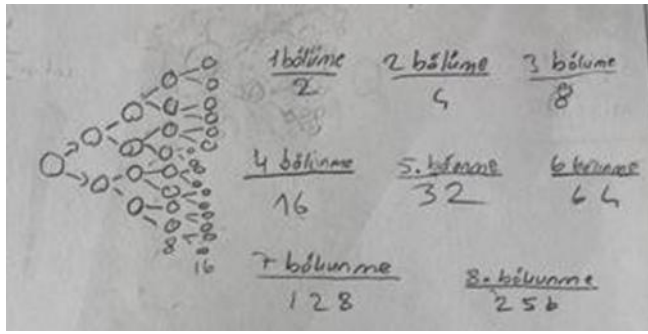 1 bölüme
2
2 bölüme
4
3 bölume
8
4 bölünme
16
5. bölünme
32
6 bölünme
64
8
16
7 bökunme
128
8. bökunme
256